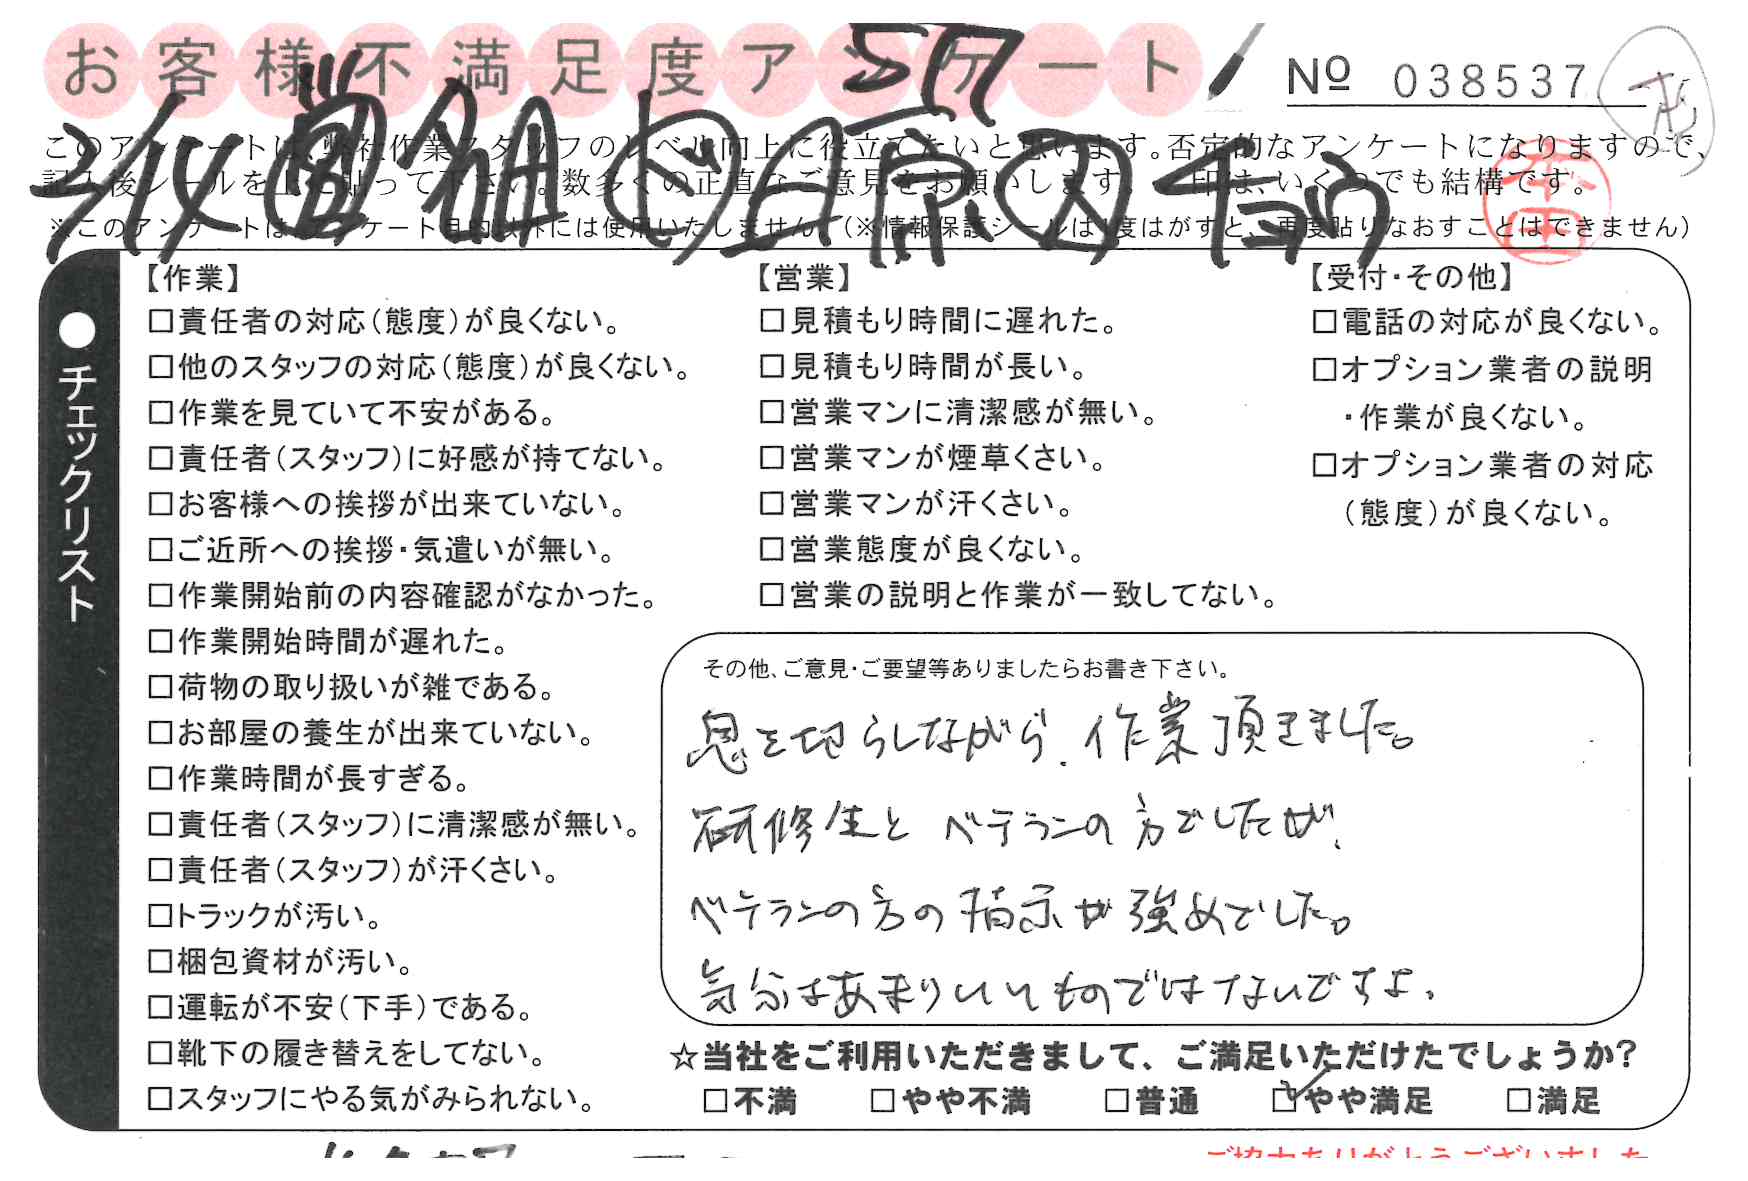 お客様不満足度アンケート
№ 038537
このアンケートは、弊社作業スタッフのレベル向上に役立てたいと思います。否定的なアンケートになりますので、
記入後シールを上に貼って下さい。数多くの正直なご意見をお願いします。✓印は、いくつでも結構です。
※このアンケートは、アンケート目的以外には使用いたしません。(※情報保護シールは1度はがすと、再度貼りなおすことはできません)
●チェックリスト
【作業】
□責任者の対応(態度)が良くない。
□他のスタッフの対応(態度)が良くない。
□作業を見ていて不安がある。
□責任者(スタッフ)に好感が持てない。
□お客様への挨拶が出来ていない。
□ご近所への挨拶・気遣いが無い。
□作業開始前の内容確認がなかった。
□作業開始時間が遅れた。
□荷物の取り扱いが雑である。
□お部屋の養生が出来ていない。
□作業時間が長すぎる。
□責任者(スタッフ)に清潔感が無い。
□責任者(スタッフ)が汗くさい。
□トラックが汚い。
□梱包資材が汚い。
□運転が不安(下手)である。
□靴下の履き替えをしてない。
□スタッフにやる気がみられない。
【営業】
□見積もり時間に遅れた。
□見積もり時間が長い。
□営業マンに清潔感が無い。
□営業マンが煙草くさい。
□営業マンが汗くさい。
□営業態度が良くない。
□営業の説明と作業が一致してない。
【受付・その他】
□電話の対応が良くない。
□オプション業者の説明
・作業が良くない。
□オプション業者の対応
(態度)が良くない。
その他、ご意見・ご要望等ありましたらお書き下さい。
息を切らしながら、作業頂きました。
研修生とベテランの方でしたが、
ベテランの方の指示が強めでした。
気分はあまりいいものではないですよ。
☆当社をご利用いただきまして、ご満足いただけたでしょうか?
□不満 □やや不満 □普通 ☑やや満足 □満足
ご協力ありがとうございました